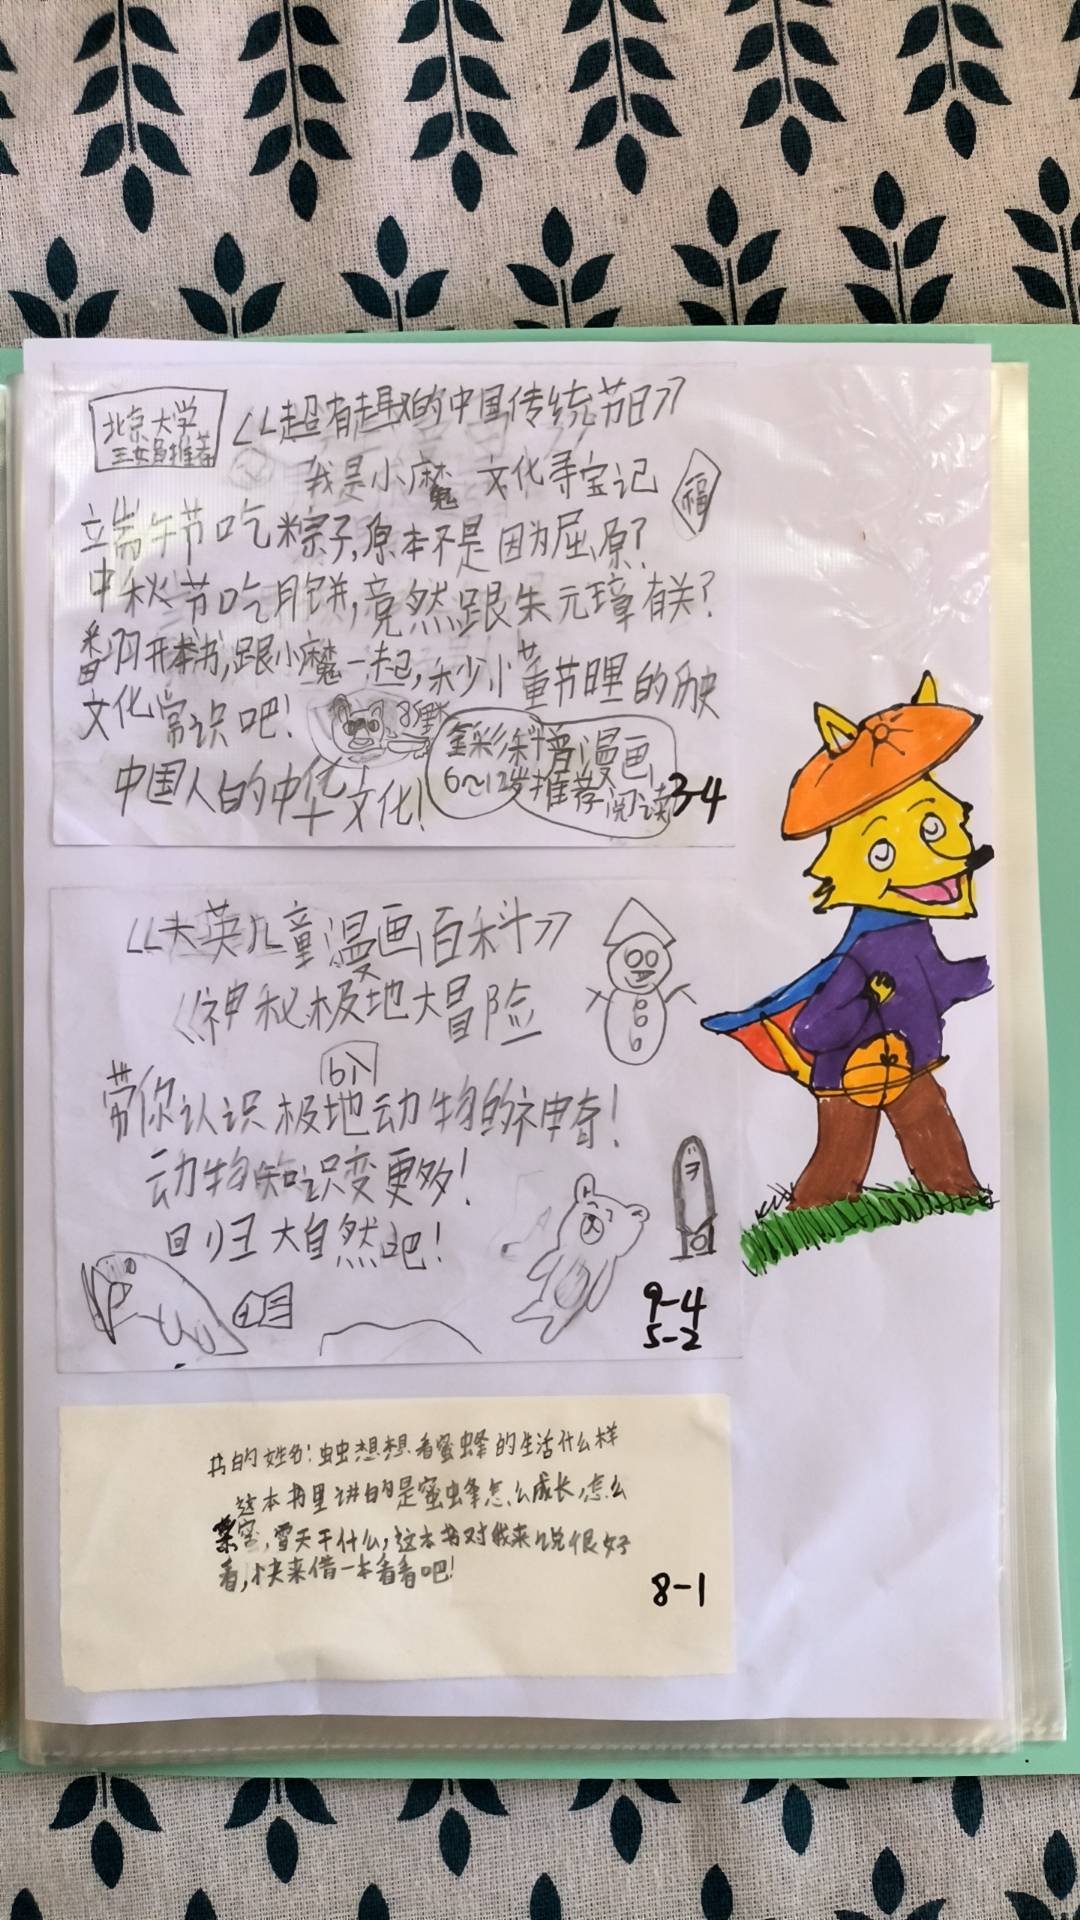 北京大学
推荐
《超有趣的中国传统节日》
我是小魔 文化寻宝记
福
端午节吃粽子,原本不是因为屈原?
中秋节吃月饼,竟然跟朱元璋有关?
翻开本书,跟小魔一起,节里的历史
文化常识吧!
中国人的中华文化!
漫画
6~12岁推荐阅读
3-4
英儿童漫画百科》
《神秘极地大冒险
6个
带你认识极地动物的神奇!
动物知识变更多!
回归大自然吧!
9-4
5-2
书的姓名:虫虫想想看蜜蜂的生活什么样
这本书里讲的是蜜蜂怎么成长,怎么
蜜,雪天干什么,这本书对我来说很好
看,快来借一本看看吧!
8-1